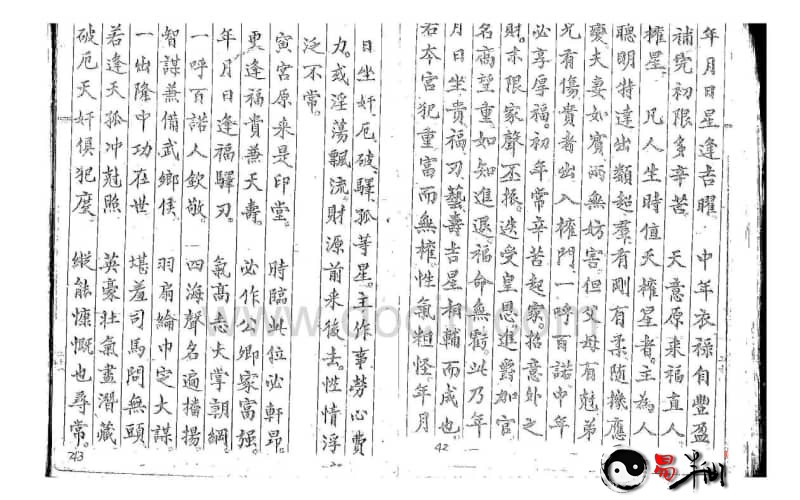 年月日星逢吉曜　中年衣祿自豐盈
補完初限多辛苦　天意原来福直人
權星　凡人生時值天權星者。主為人
聰明特達出類超羣。有剛有柔随機應
變夫妻如賓。兩無妨害。但父母有尅弟
兄有傷貴者出入權門。一呼百諾中年
必享厚福。初年常辛苦起家。招意外之
財。末限家聲丕振。迭受皇恩進爵加官
名高望重。如知進退福命無虧。此乃年
月日坐貴福刃藝壽吉星相輔而成也。
若本宫犯重富而無權。性氣粗怪年月
42
日坐奸厄。破。驛。孤等星。主作事勞心費
力。或淫蕩飄流。財源前来後去。性情浮
泛不常。
寅宫原来是印堂。　時臨此位必軒昂。
更逢福貴兼天壽。　必作公卿家富强。
年月日逢福驛刃。　氣高志大掌朝綱。
一呼百諾人欽敬。　四海聲名遍播揚。
智謀兼備武鄉侯。　羽扇綸巾定大謀。
一出隆中功在世　堪羞司馬問無頭
若逢天孤冲尅照　英豪壯氣盡潛藏
破厄天奸俱犯度。　縱能慷慨也尋常。
43
www.docin.com
易